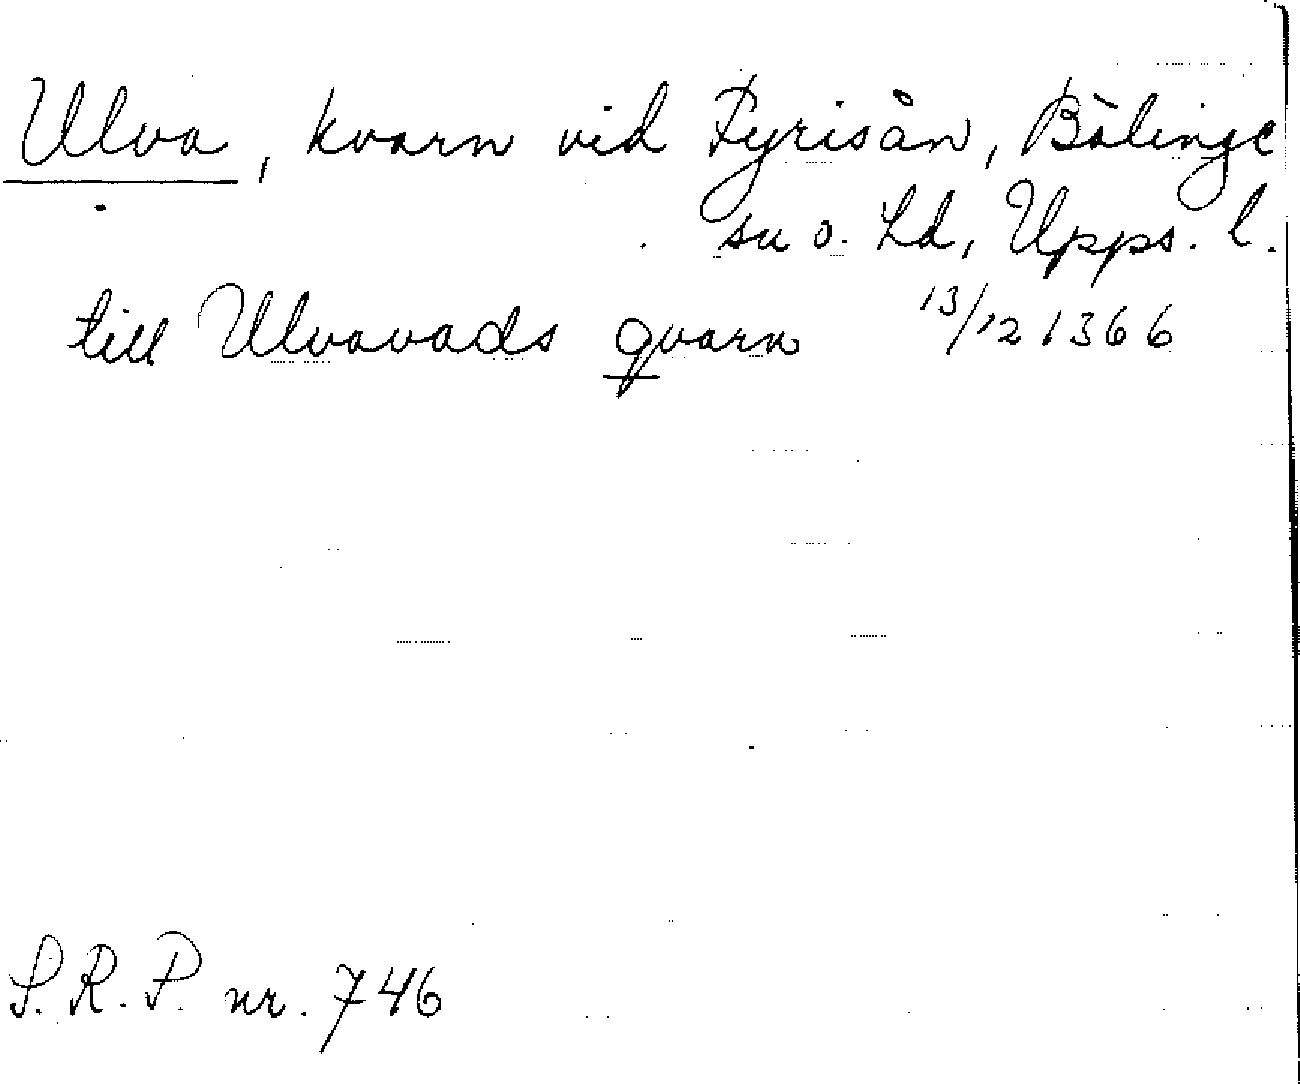 Ulva, kvarn vid Fyrisån, Bälinge
sn o. hd, Upps. l.
till Ulvavads qvarn 13/12 1366
S.R.P. nr. 746